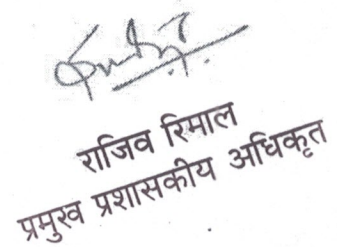 राजिव रिमाल
प्रमुख प्रशासकीय अधिकृत